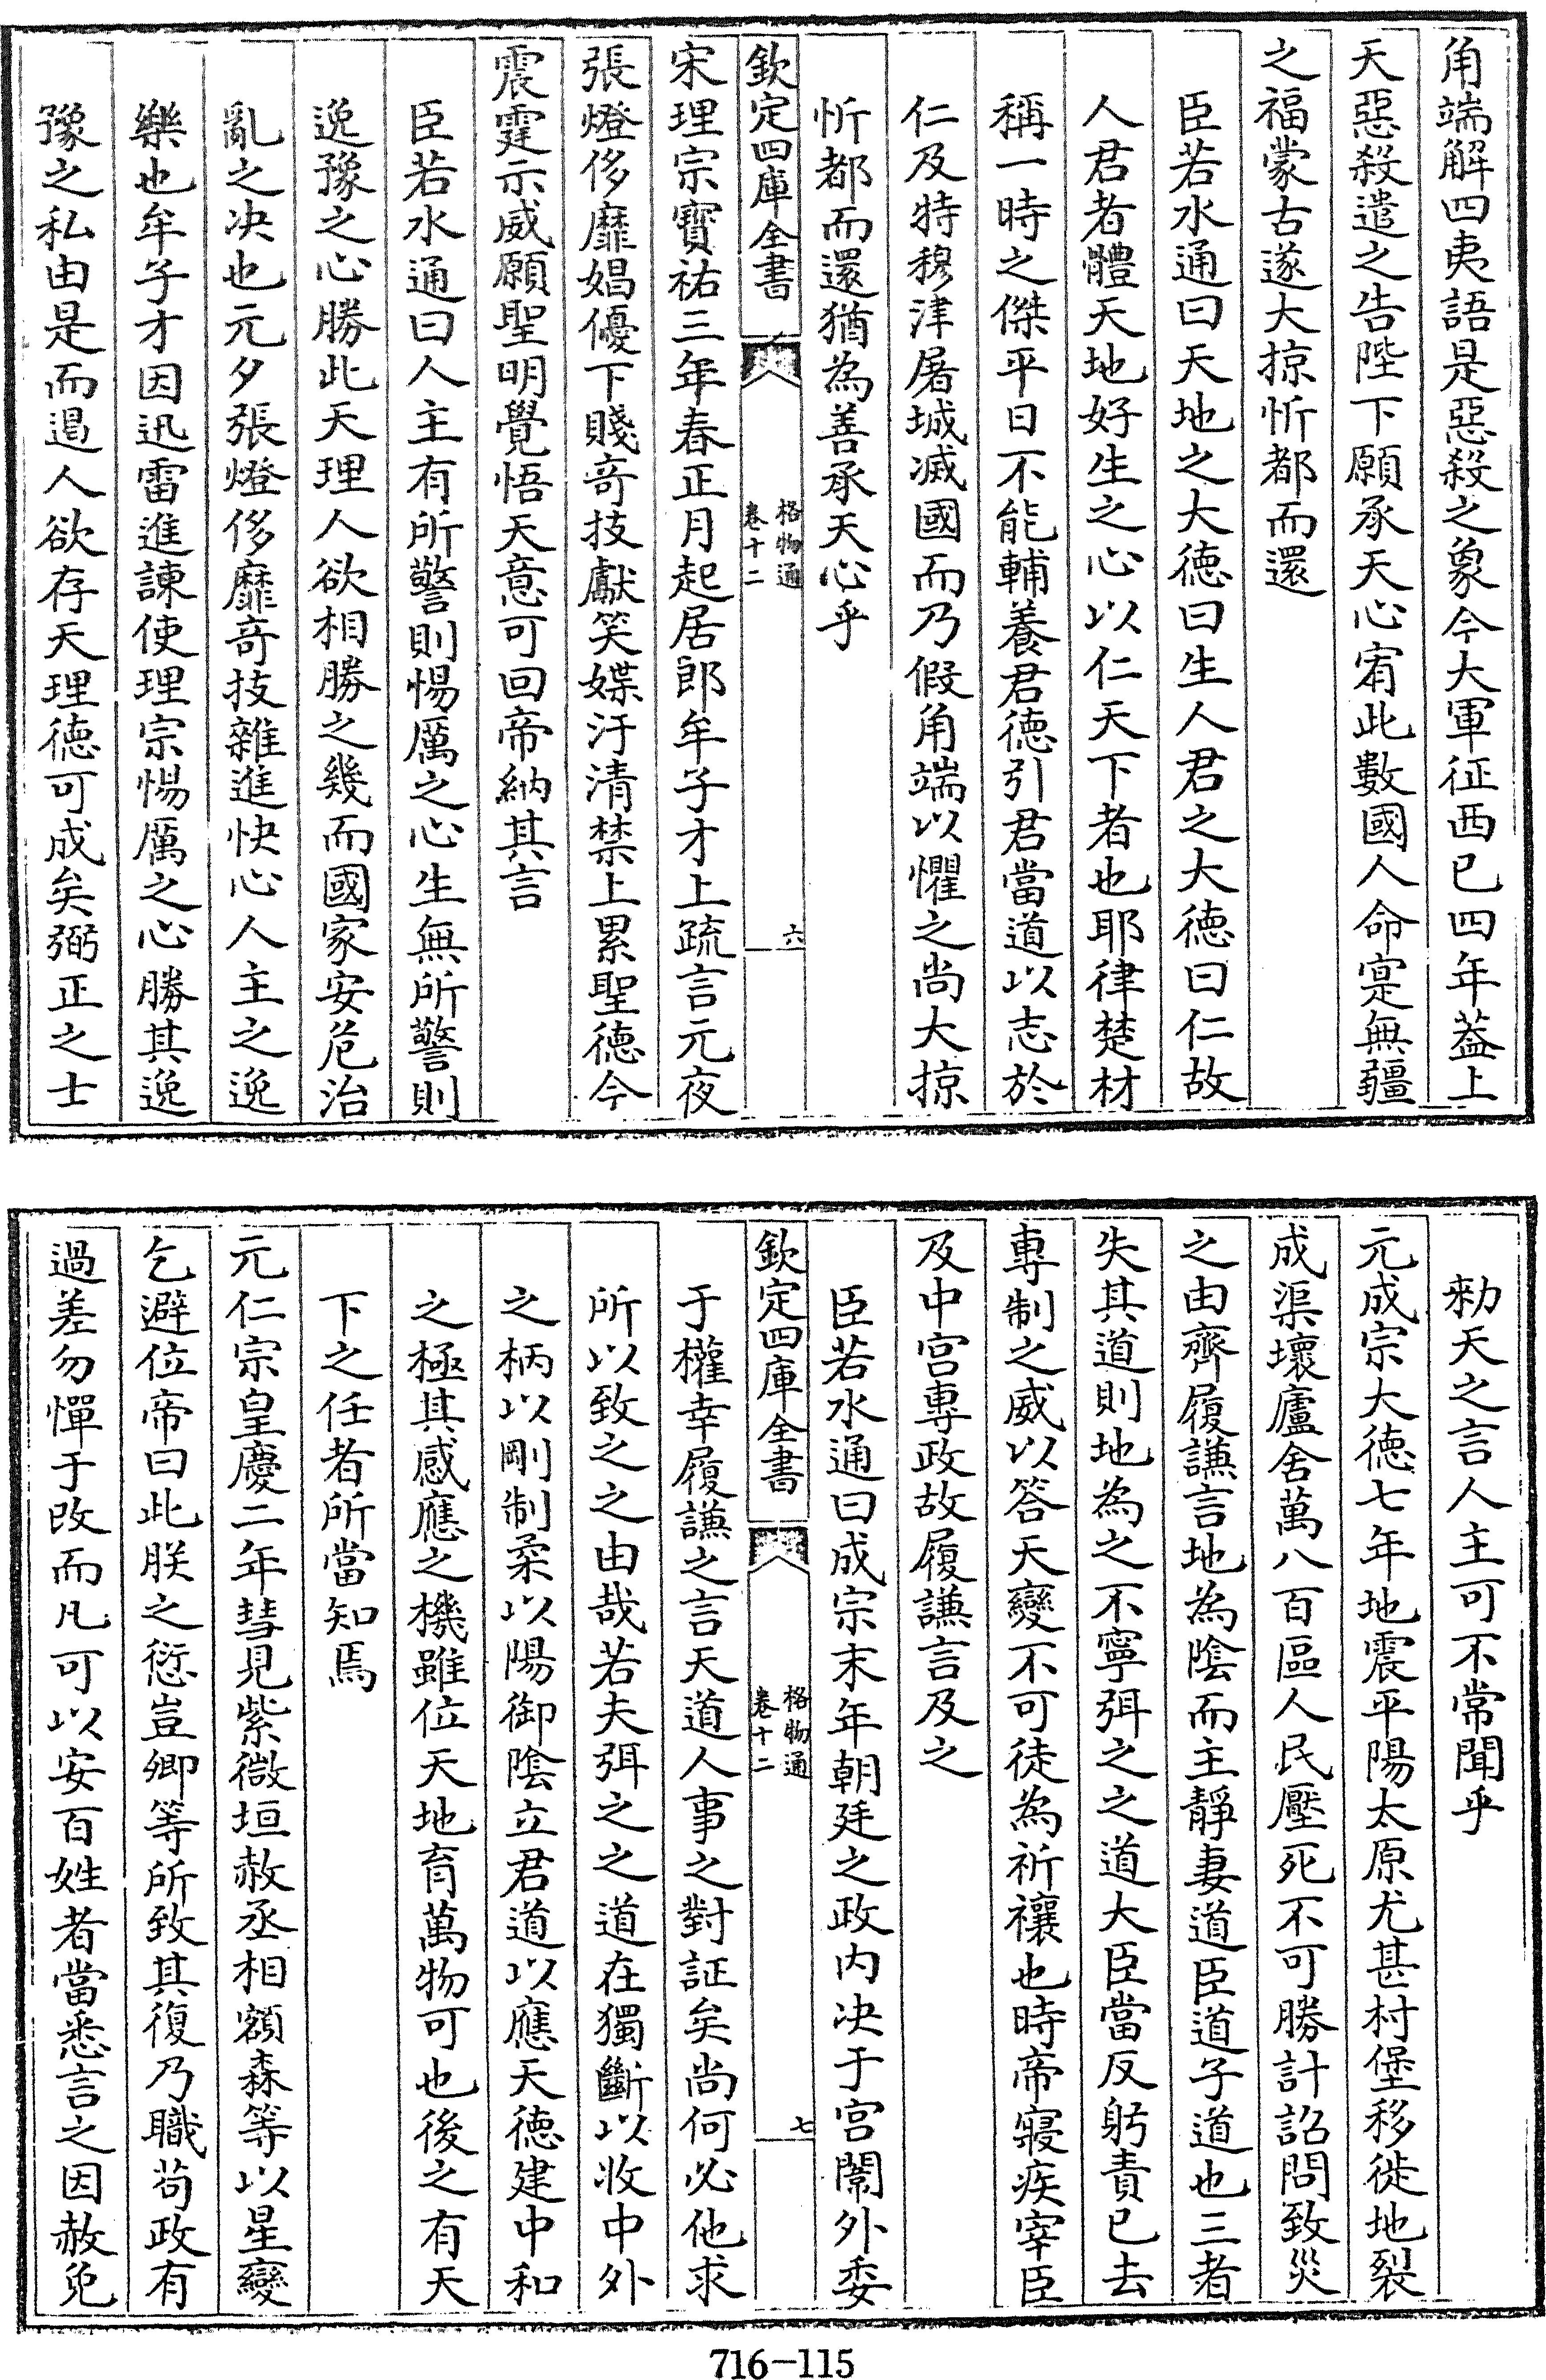 角端解四夷語是惡殺之象今大軍征西已四年葢上
天惡殺遣之告陛下願承天心宥此數國人命寔無疆
之福蒙古遂大掠忻都而還
臣若水通曰天地之大徳曰生人君之大徳曰仁故
人君者體天地好生之心以仁天下者也耶律楚材
稱一時之傑平日不能輔養君徳引君當道以志於
仁及特穆津屠城滅國而乃假角端以懼之尚大掠
忻都而還猶為善承天心乎
欽定四庫全書
格物通
卷十二
六
宋理宗寳祐三年春正月起居郎牟子才上疏言元夜
張燈侈靡娼優下賤竒技獻笑媟汙清禁上累聖徳今
震霆示威願聖明覺悟天意可回帝納其言
臣若水通曰人主有所警則惕厲之心生無所警則
逸豫之心勝此天理人欲相勝之幾而國家安危治
亂之决也元夕張燈侈靡竒技雜進快心人主之逸
樂也牟子才因迅雷進諫使理宗惕厲之心勝其逸
豫之私由是而遏人欲存天理徳可成矣弼正之士
勑天之言人主可不常聞乎
元成宗大徳七年地震平陽太原尤甚村堡移徙地裂
成渠壞廬舍萬八百區人民壓死不可勝計詔問致災
之由齊履謙言地為陰而主靜妻道臣道子道也三者
失其道則地為之不寧弭之之道大臣當反躬責已去
専制之威以答天變不可徒為祈禳也時帝寢疾宰臣
及中宫専政故履謙言及之
臣若水通曰成宗末年朝廷之政内决于宫闈外委
欽定四庫全書
格物通
卷十二
七
于權幸履謙之言天道人事之對証矣尚何必他求
所以致之之由哉若夫弭之之道在獨斷以收中外
之柄以剛制柔以陽御陰立君道以應天徳建中和
之極其感應之機雖位天地育萬物可也後之有天
下之任者所當知焉
元仁宗皇慶二年彗見紫微垣赦丞相額森等以星變
乞避位帝曰此朕之愆豈卿等所致其復乃職苟政有
過差勿憚于改而凡可以安百姓者當悉言之因赦免
716-115